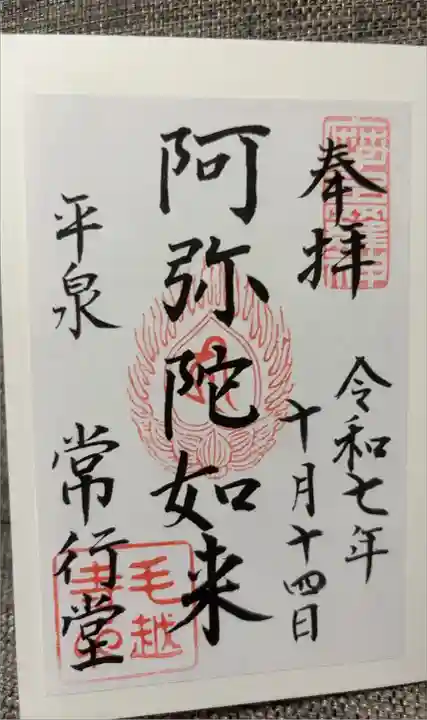 奉拝
令和七年
十月十四日
阿弥陀如来
平泉 常行堂
毛越